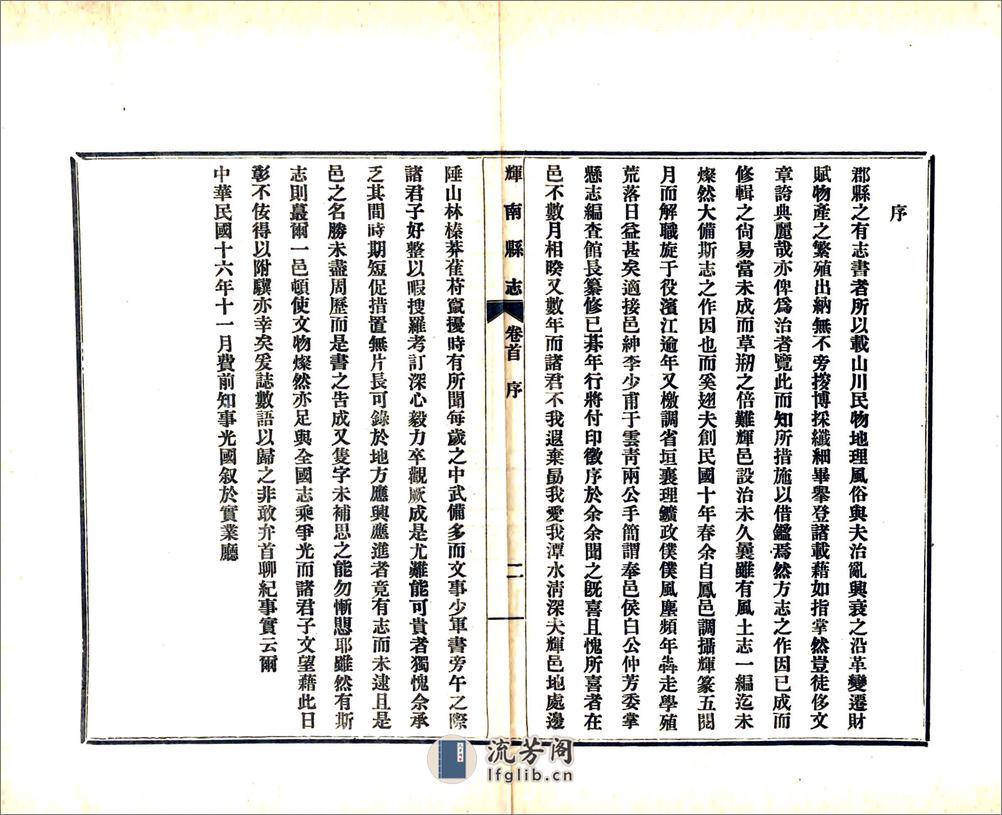 序
郡縣之有志書者所以載山川民物地理風俗與夫治亂興衰之沿革變遷財
賦物產之繁殖出納無不旁搜博採纖細畢舉登諸載藉如指掌然豈徒侈文
章誇典麗哉亦俾爲治者覽此而知所措施以借鑑焉然方志之作因已成而
修輯之尙易當未成而草刱之倍難輝邑設治未久曩雖有風土志一編迄未
燦然大備斯志之作因也而奚翅夫創民國十年春余自鳳邑調攝輝篆五閱
月而解職旋于役濱江逾年又檄調省垣襄理鑛政僕僕風塵頻年犇走學殖
荒落日益甚矣適接邑紳李少甫于雲青兩公手簡謂奉邑侯白公仲芳委掌
縣志編查館長纂修已朞年行將付印徵序於余余聞之旣喜且愧所喜者在
邑不數月相暌又數年而諸君不我遐棄勗我愛我潭水淸深夫輝邑地處邊
輝南縣志 卷首 序 二
陲山林榛莽萑苻竄擾時有所聞每歲之中武備多而文事少軍書旁午之際
諸君子好整以暇搜羅考訂深心毅力卒觀厥成是尤難能可貴者獨愧余承
乏其間時期短促措置無片長可錄於地方應興應進者竟有志而未逮且是
邑之名勝未盡周歷而是書之告成又隻字未補思之能勿慚恧耶雖然有斯
志則蕞爾一邑頓使文物燦然亦足與全國志乘爭光而諸君子文望藉此日
彰不佞得以附驥亦幸矣爰誌數語以歸之非敢弁首聊紀事實云爾
中華民國十六年十一月費前知事光國叙於實業廳
流芳阁
lfglib.cn